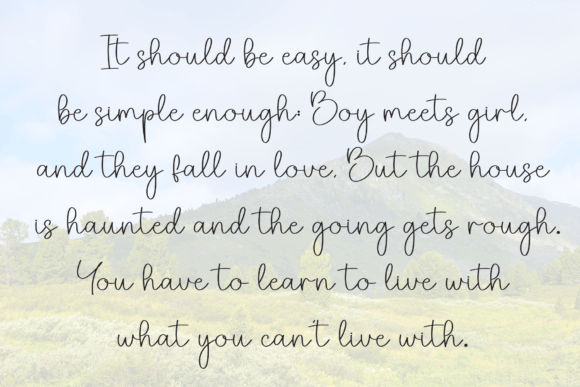 It should be easy, it should
be simple enough: Boy meets girl,
and they fall in love. But the house
is haunted and the going gets rough.
You have to learn to live with
what you can't live with.